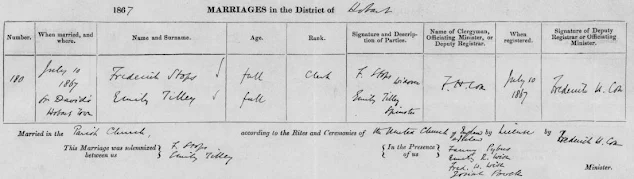 1867 MARRIAGES in the District of Hobart
Number. When married, and where. Name and Surname. Age. Rank. Signature and Description of Parties. Name of Clergyman, Officiating Minister, or Deputy Registrar. When registered. Signature of Deputy Registrar or Officiating Minister.
180 July 10 1867 St David's Hobart Town
Frederick Stops full Clerk F. Stops Widower F. H. Cox July 10 1867 Frederick H. Cox
Emily Tilley full Emily Tilley Spinster
Married in the Parish Church according to the Rites and Ceremonies of the United Church of England & Ireland by License by Frederick H. Cox
This Marriage was solemnized between us F. Stops Emily Tilley
In the Presence of us Fanny Pybus Emily E. Wise Fred. H. Wise Josiah Powell Minister.